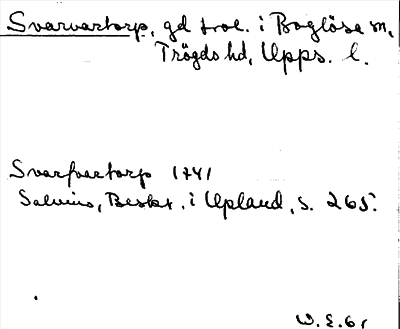 Svarvartorp, gd trol. i Boglösa sn,
Trögds hd, Upps. l.
Svarfvartorp 1741
Salvius, Beskr. i Upland, s. 265.
W.E. 61